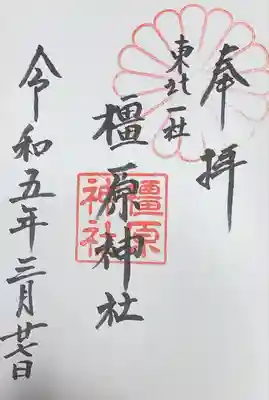 奉拝
東北一社
橿原神社
橿原神社
令和五年三月廿七日